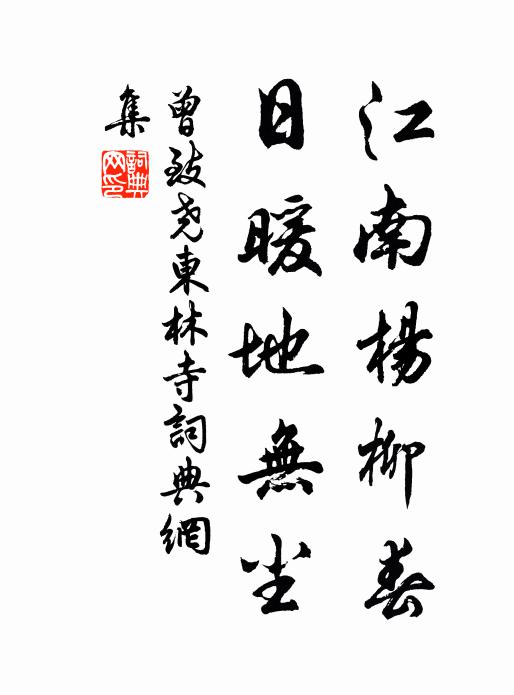 江南楊柳春
日暖地無尘
曾致尧東林寺詞典網
集
詞典网印